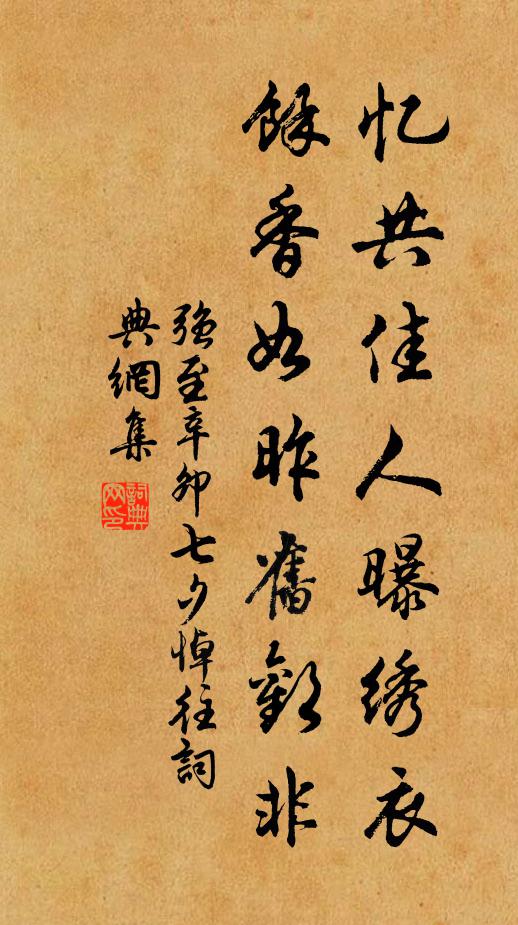 忆共佳人曝绣衣
馀香如昨舊歡非
强至辛卯七夕悼往詞
典網集
詞典
网印